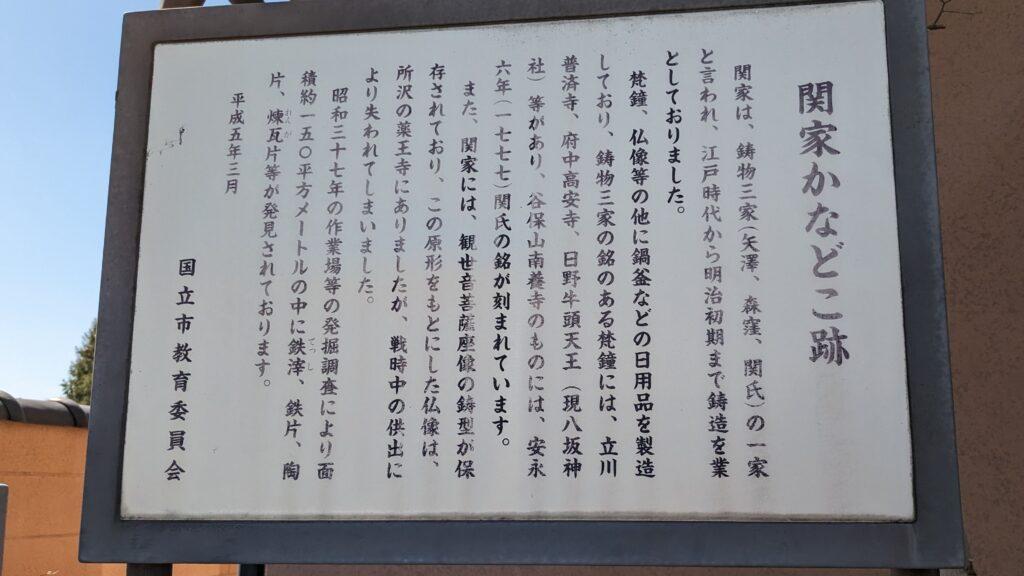 関家かなどこ跡
関家は、鋳物三家(矢澤、森窪、関氏)の一家
と言われ、江戸時代から明治初期まで鋳造を業
としておりました。
梵鐘、仏像等の他に鍋釜などの日用品を製造
しており、鋳物三家の銘のある梵鐘には、立川
普済寺、府中高安寺、日野牛頭天王(現八坂神
社)等があり、谷保山南養寺のものには、安永
六年(一七七七)関氏の銘が刻まれています。
また、関家には、観世音菩薩座像の鋳型が保
存されており、この原形をもとにした仏像は、
所沢の薬王寺にありましたが、戦時中の供出に
より失われてしまいました。
昭和三十七年の作業場等の発掘調査により面
積約一五〇平方メートルの中に鉄滓、鉄片、陶
片、煉瓦片等が発見されております。
平成五年三月
国立市教育委員会